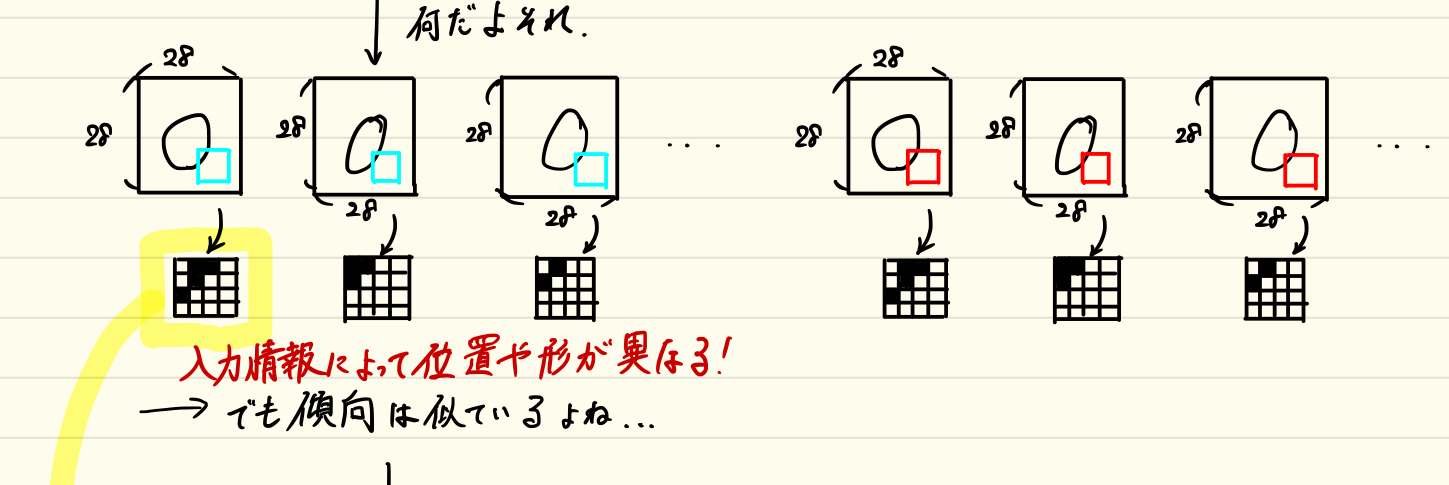 何だよそれ.
28 28
28 28 28 ... 28 28 28 ...
28 28 28 28
入力情報によって位置や形が異なる!
→ でも傾向は似ているよね...